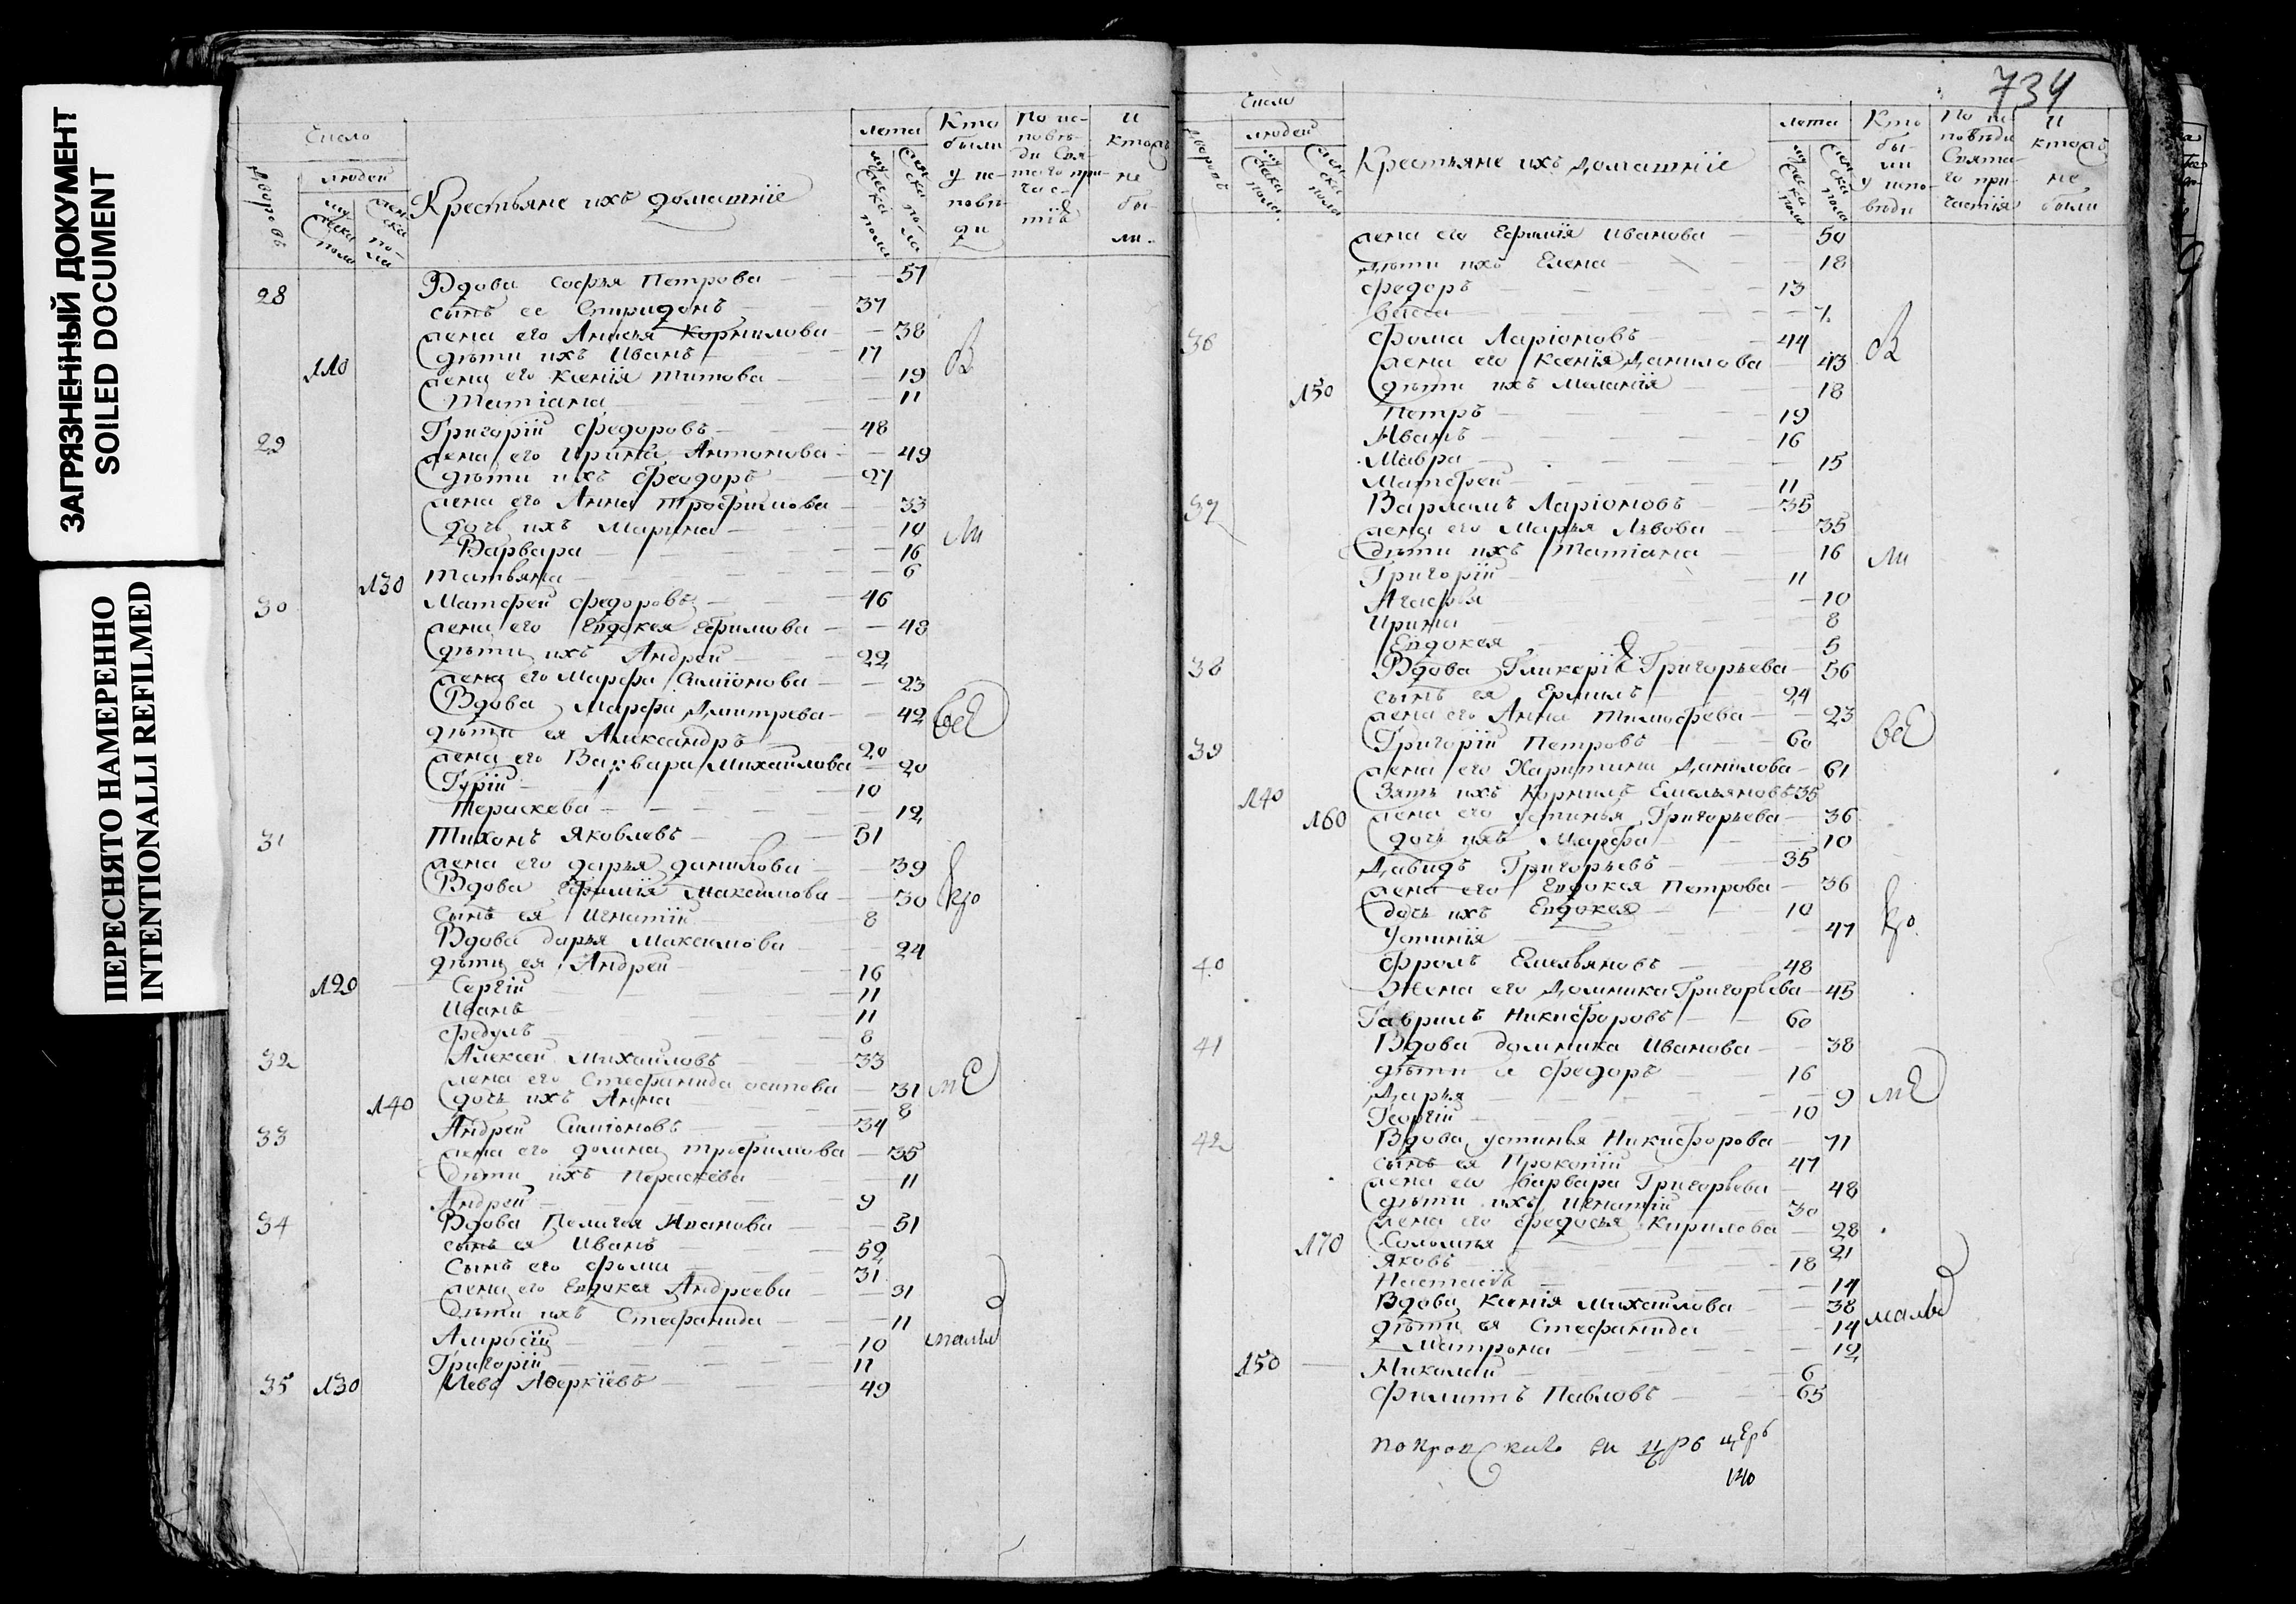 ЗАГРЯЗНЕННЫЙ ДОКУМЕНТ
SOILED DOCUMENT
ПЕРЕСНЯТО НАМЕРЕННО
INTENTIONALLI REFILMED
Число
людей
дворовъ
мужеска пола
женска пола
Крестьяне ихъ домашніе
лета
мужеска пола
женска пола
Кто были у исповѣди
По исповѣди Святаго причастія
И кто же не были
28 Вдова Софья Петрова 51
сынъ ее Спиридонъ 37
жена его Анисья Корнилова 38
дѣти ихъ Иванъ 17
110 жена его Ксенія Титова 19
Татіана 11
29 Григорій Федоровъ 48
жена его Ирина Антонова 49
дѣти ихъ Феодоръ 27
жена его Анна Трофимова 33
дочь ихъ Марина 10
Варвара 16
130 Татьяна 6
30 Матфей Федоровъ 46
жена его Евдокея Ефимова 48
дѣти ихъ Андрей 22
жена его Марфа Симіонова 23
Вдова Марфа Дмитрева 42
дѣти ея Александръ 20
жена его Варвара Михайлова 20
Гурій 10
Пераскева 12
31 Тихонъ Яковлевъ 51
жена его дарья данилова 39
Вдова Ефимія Максимова 50
Сынъ ея Игнатій 8
Вдова дарья Максимова 24
дѣти ея Андрей 16
120 Сергій 11
Иванъ 11
Федулъ 8
32 Алексей Михайловъ 33
жена его Стефанида осипова 31
140 дочь ихъ Анна 8
33 Андрей Симіоновъ 34
жена его домна трофимова 35
Дѣти ихъ Пераскева 11
Андрей 9
34 Вдова Пелагея Иванова 51
сынъ ея Иванъ 52
Сынъ его Фома 31
жена его Евдокея Андреева 31
Дѣти ихъ Стефанида 11
Амросій 10
Григорій 11
35 130 Левъ Аверкіевъ 49
734
Число
людей
дворовъ
мужеска пола
женска пола
Крестьяне ихъ домашніе
лета
мужеска пола
женска пола
Кто были у исповѣди
По исповѣди Святаго причастія
И кто же не были
жена его Ефимія Иванова 50
дѣти ихъ Елена 18
Федоръ 13
Васса 7
36 Фома Ларіоновъ 44
жена его Ксенія Данилова 43
150 дѣти ихъ Маланія 18
Петръ 19
Иванъ 16
Мавра 15
Матфей 11
37 Варламъ Ларіоновъ 35
жена его Марья Львова 35
дѣти ихъ Татіана 16
Григорій 11
Агафья 10
Ирина 8
Евдокея 5
38 Вдова Гликерія Григорьева 56
сынъ ея Ермилъ 24
жена его Анна Тимофева 23
39 Григорій Петровъ 60
жена его Харитина Данилова 61
140 Зять ихъ Корнилъ Емельяновъ 35
160 жена его Устинья Григорьева 36
дочь ихъ Марфа 10
Давидъ Григорьевъ 35
жена его Евдокея Петрова 36
дочь ихъ Евдокея 10
Устинія 47
40 Фролъ Емельяновъ 48
Жена его Домника Григорьева 45
Гаврилъ Никифоровъ 60
41 Вдова домника Иванова 38
дѣти ея Федоръ 16
Дарья 9
Георгій 10
42 Вдова устинья Никифорова 71
сынъ ея Прокопій 47
жена его варвара Григорьева 48
дѣти ихъ Игнатій 30
жена его Федосья Кирилова 28
170 Соломія 21
Яковъ 18
Настасія 14
Вдова Ксенія Михайлова 38
дѣти ея Стефанида 14
Матрона 12
150 Николай 6
Филиппъ Павловъ 65